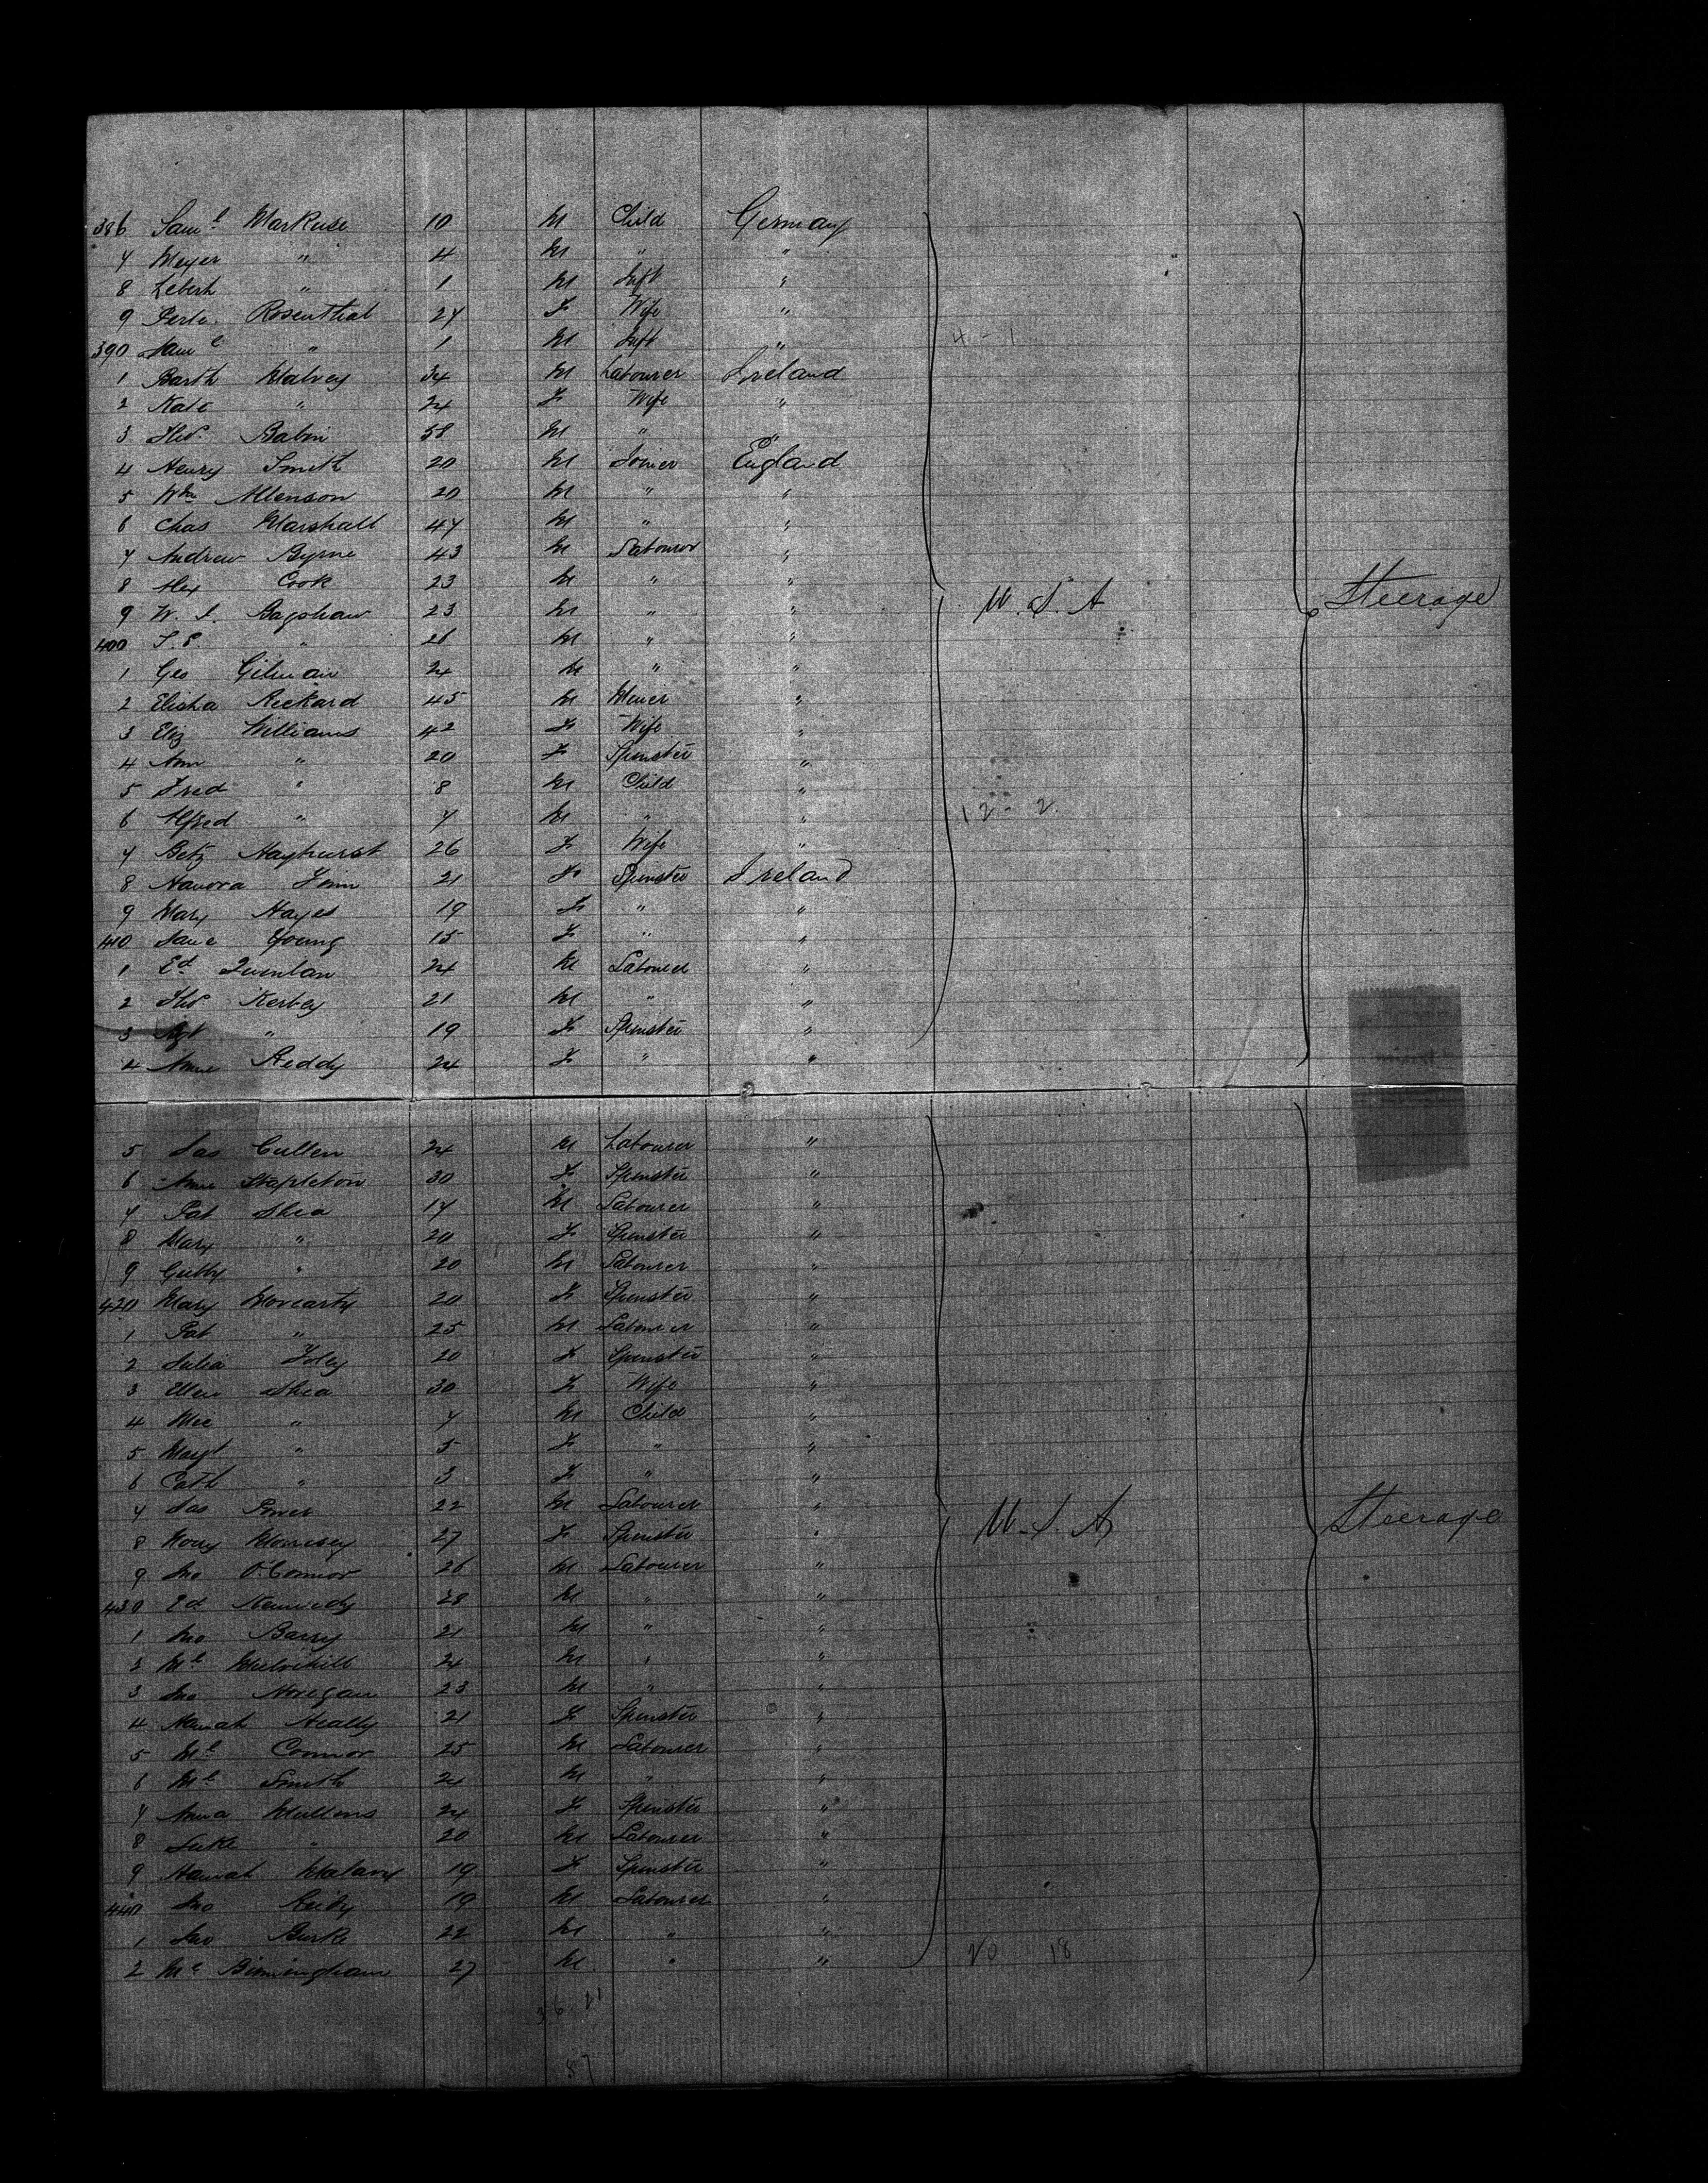 386 Saml Markuse 10 M Child Germany
7 Meyer " 4 M " "
8 Lebert " 1 M Inft "
9 Perle Rosenthal 27 F Wife "
390 Saml " 1 M Inft " 4 - 1
1 Barth Malvey 34 M Labourer Ireland
2 Kate " 24 F Wife "
3 Thos. Babin 58 M " "
4 Henry Smith 20 M Joiner England
5 Wm Allenson 20 M " "
6 Chas Marshall 47 M " "
7 Andrew Byrne 43 M Labourer "
8 Alex Cook 23 M " "
9 W. J. Bagshaw 23 M " " U.S.A Steerage
400 T. P. " 21 M " "
1 Geo Gilman 24 M " "
2 Elisha Rickard 45 M Miner "
3 Eliz Williams 42 F Wife "
4 Ann " 20 F Spinster "
5 Fred " 8 M Child "
6 Alfred " 7 M " " 12 - 2
7 Betz Hayhurst 26 F Wife "
8 Hanora Finn 21 F Spinster Ireland
9 Mary Hayes 19 F " "
410 Jane Young 15 F " "
1 Ed Quinlan 24 M Labourer "
2 Thos. Kerbey 21 M " "
3 Mgt " 19 F Spinster "
4 Anne Reddy 24 F " "
5 Jas Cullen 24 M Labourer "
6 Anne Stapleton 30 F Spinster "
7 Pat Shea 17 M Labourer "
8 Mary " 20 F Spinster "
9 Gubby " 20 M Labourer "
420 Mary Moriarty 20 F Spinster "
1 Pat " 25 M Labourer "
2 Julia Foley 20 F Spinster "
3 Ellen Shea 30 F Wife "
4 Mic " 7 M Child "
5 Magt " 5 F " "
6 Cath " 3 F " "
7 Jas Power 22 M Labourer "
8 Nory Morrisey 27 F Spinster " U.S.A Steerage
9 Jno O'Connor 26 M Labourer "
430 Ed Kennedy 28 M " "
1 Jno Barry 21 M " "
2 Ml Mulvihill 24 M " "
3 Jno Horigan 23 M " "
4 Hanah Heally 21 F Spinster "
5 Ml Connor 25 M Labourer "
6 Ml Smith 24 M " "
7 Anna Mullens 24 F Spinster "
8 Luke " 20 M Labourer "
9 Hannah Malany 19 F Spinster "
440 Jno Reidy 19 M Labourer "
1 Jno Burke 22 M " "
2 Mc Birmingham 27 M " " 20 18
36 21
57